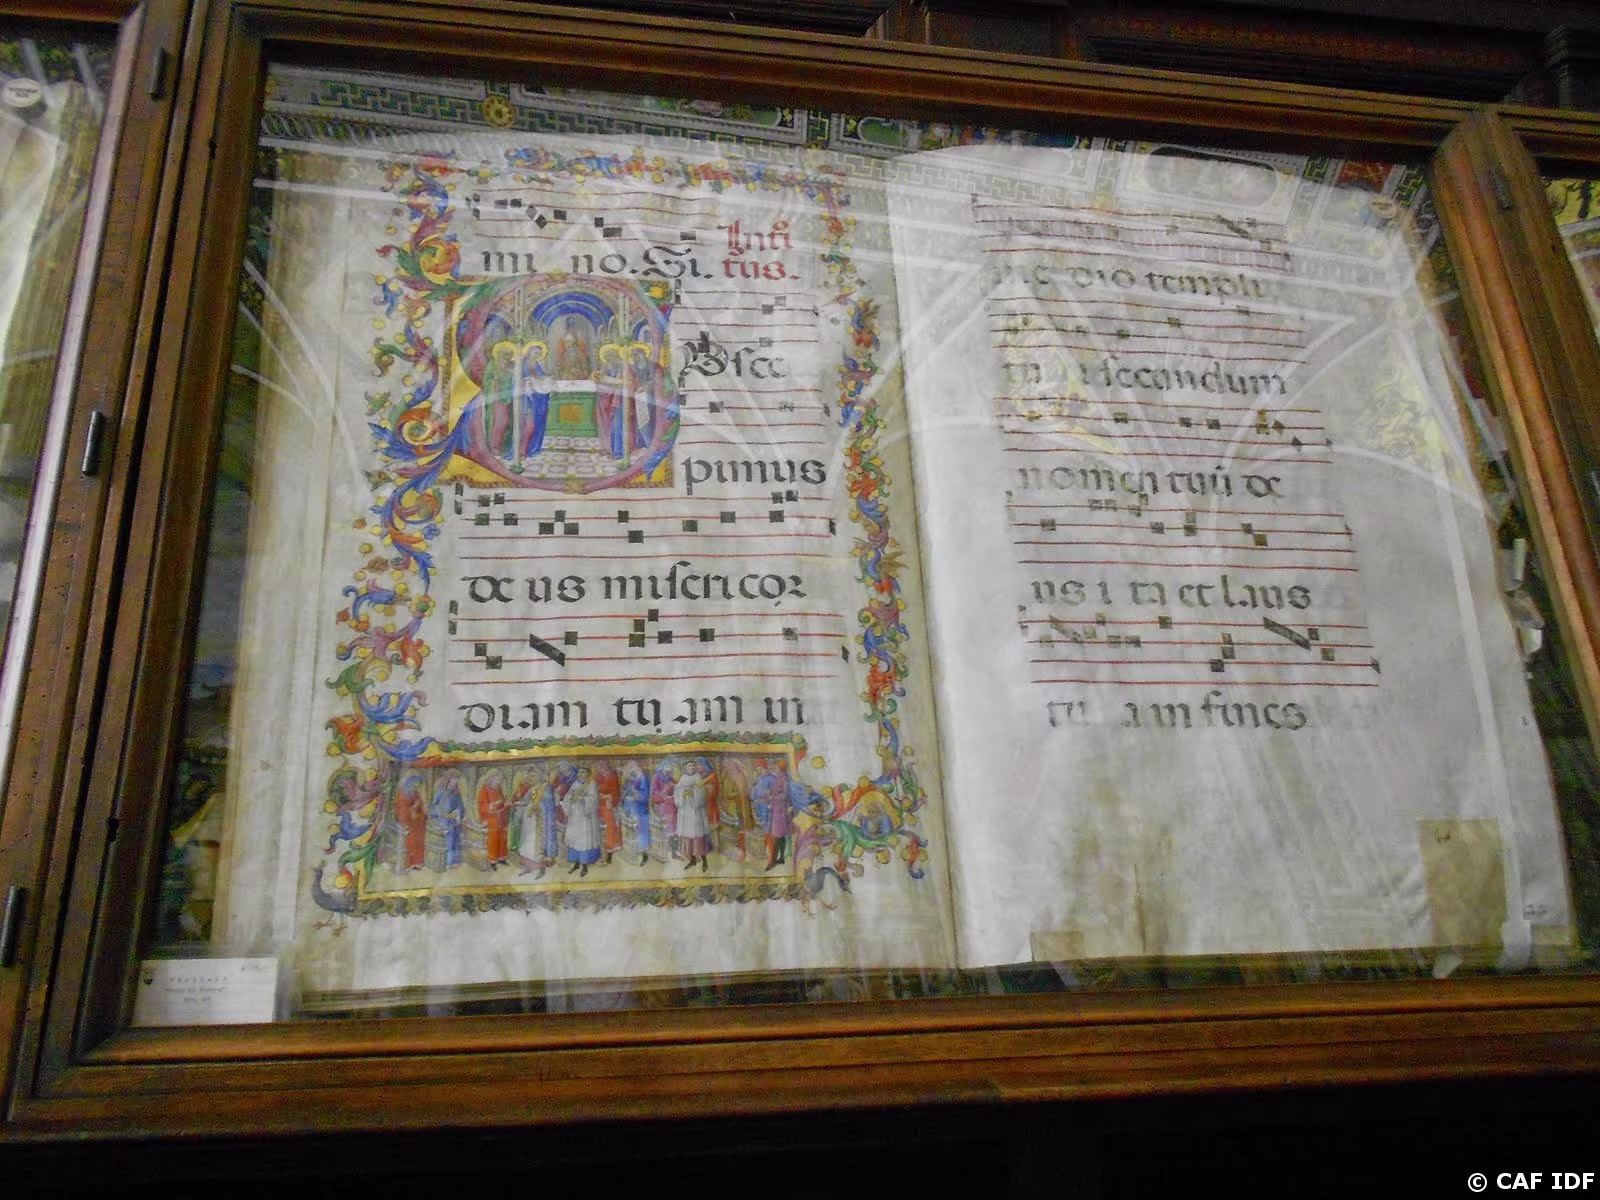 mi no. Si. Intri
tus.
Usce
pimus
deus misericor
diam tuam in
me dio templi
tu i secundum
nomen tuū de
us ita et laus
tu a in fines
© CAF IDF